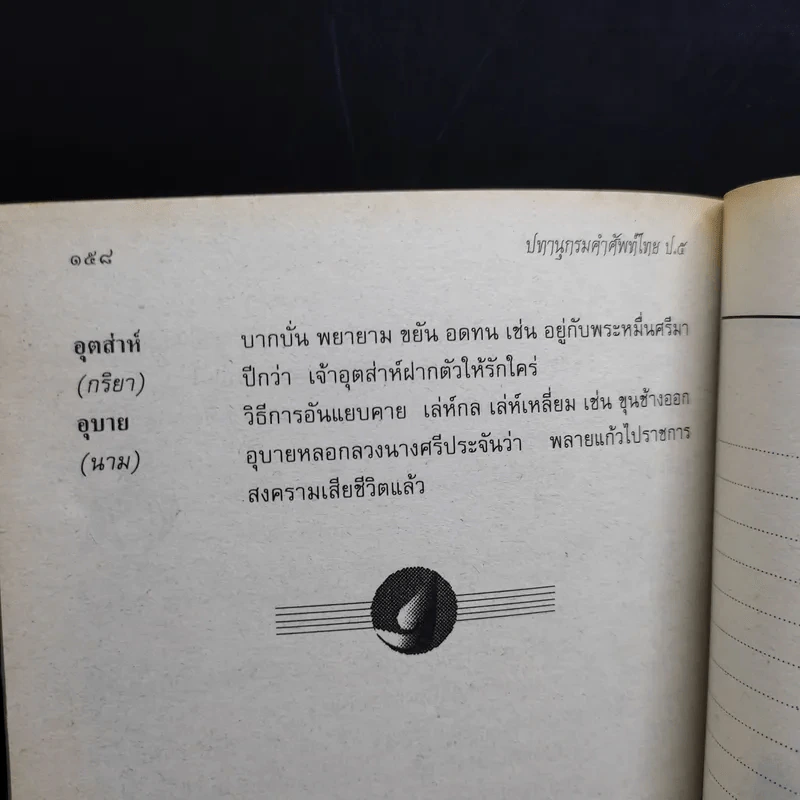 ๑๕๘
ปทานุกรมคำศัพท์ไทย ป.๕
อุตส่าห์ บากบั่น พยายาม ขยัน อดทน เช่น อยู่กับพระหมื่นศรีมา
(กริยา) ปีกว่า เจ้าอุตส่าห์ฝากตัวให้รักใคร่
อุบาย วิธีการอันแยบคาย เล่ห์กล เล่ห์เหลี่ยม เช่น ขุนช้างออก
(นาม) อุบายหลอกลวงนางศรีประจันว่า พลายแก้วไปราชการ
สงครามเสียชีวิตแล้ว